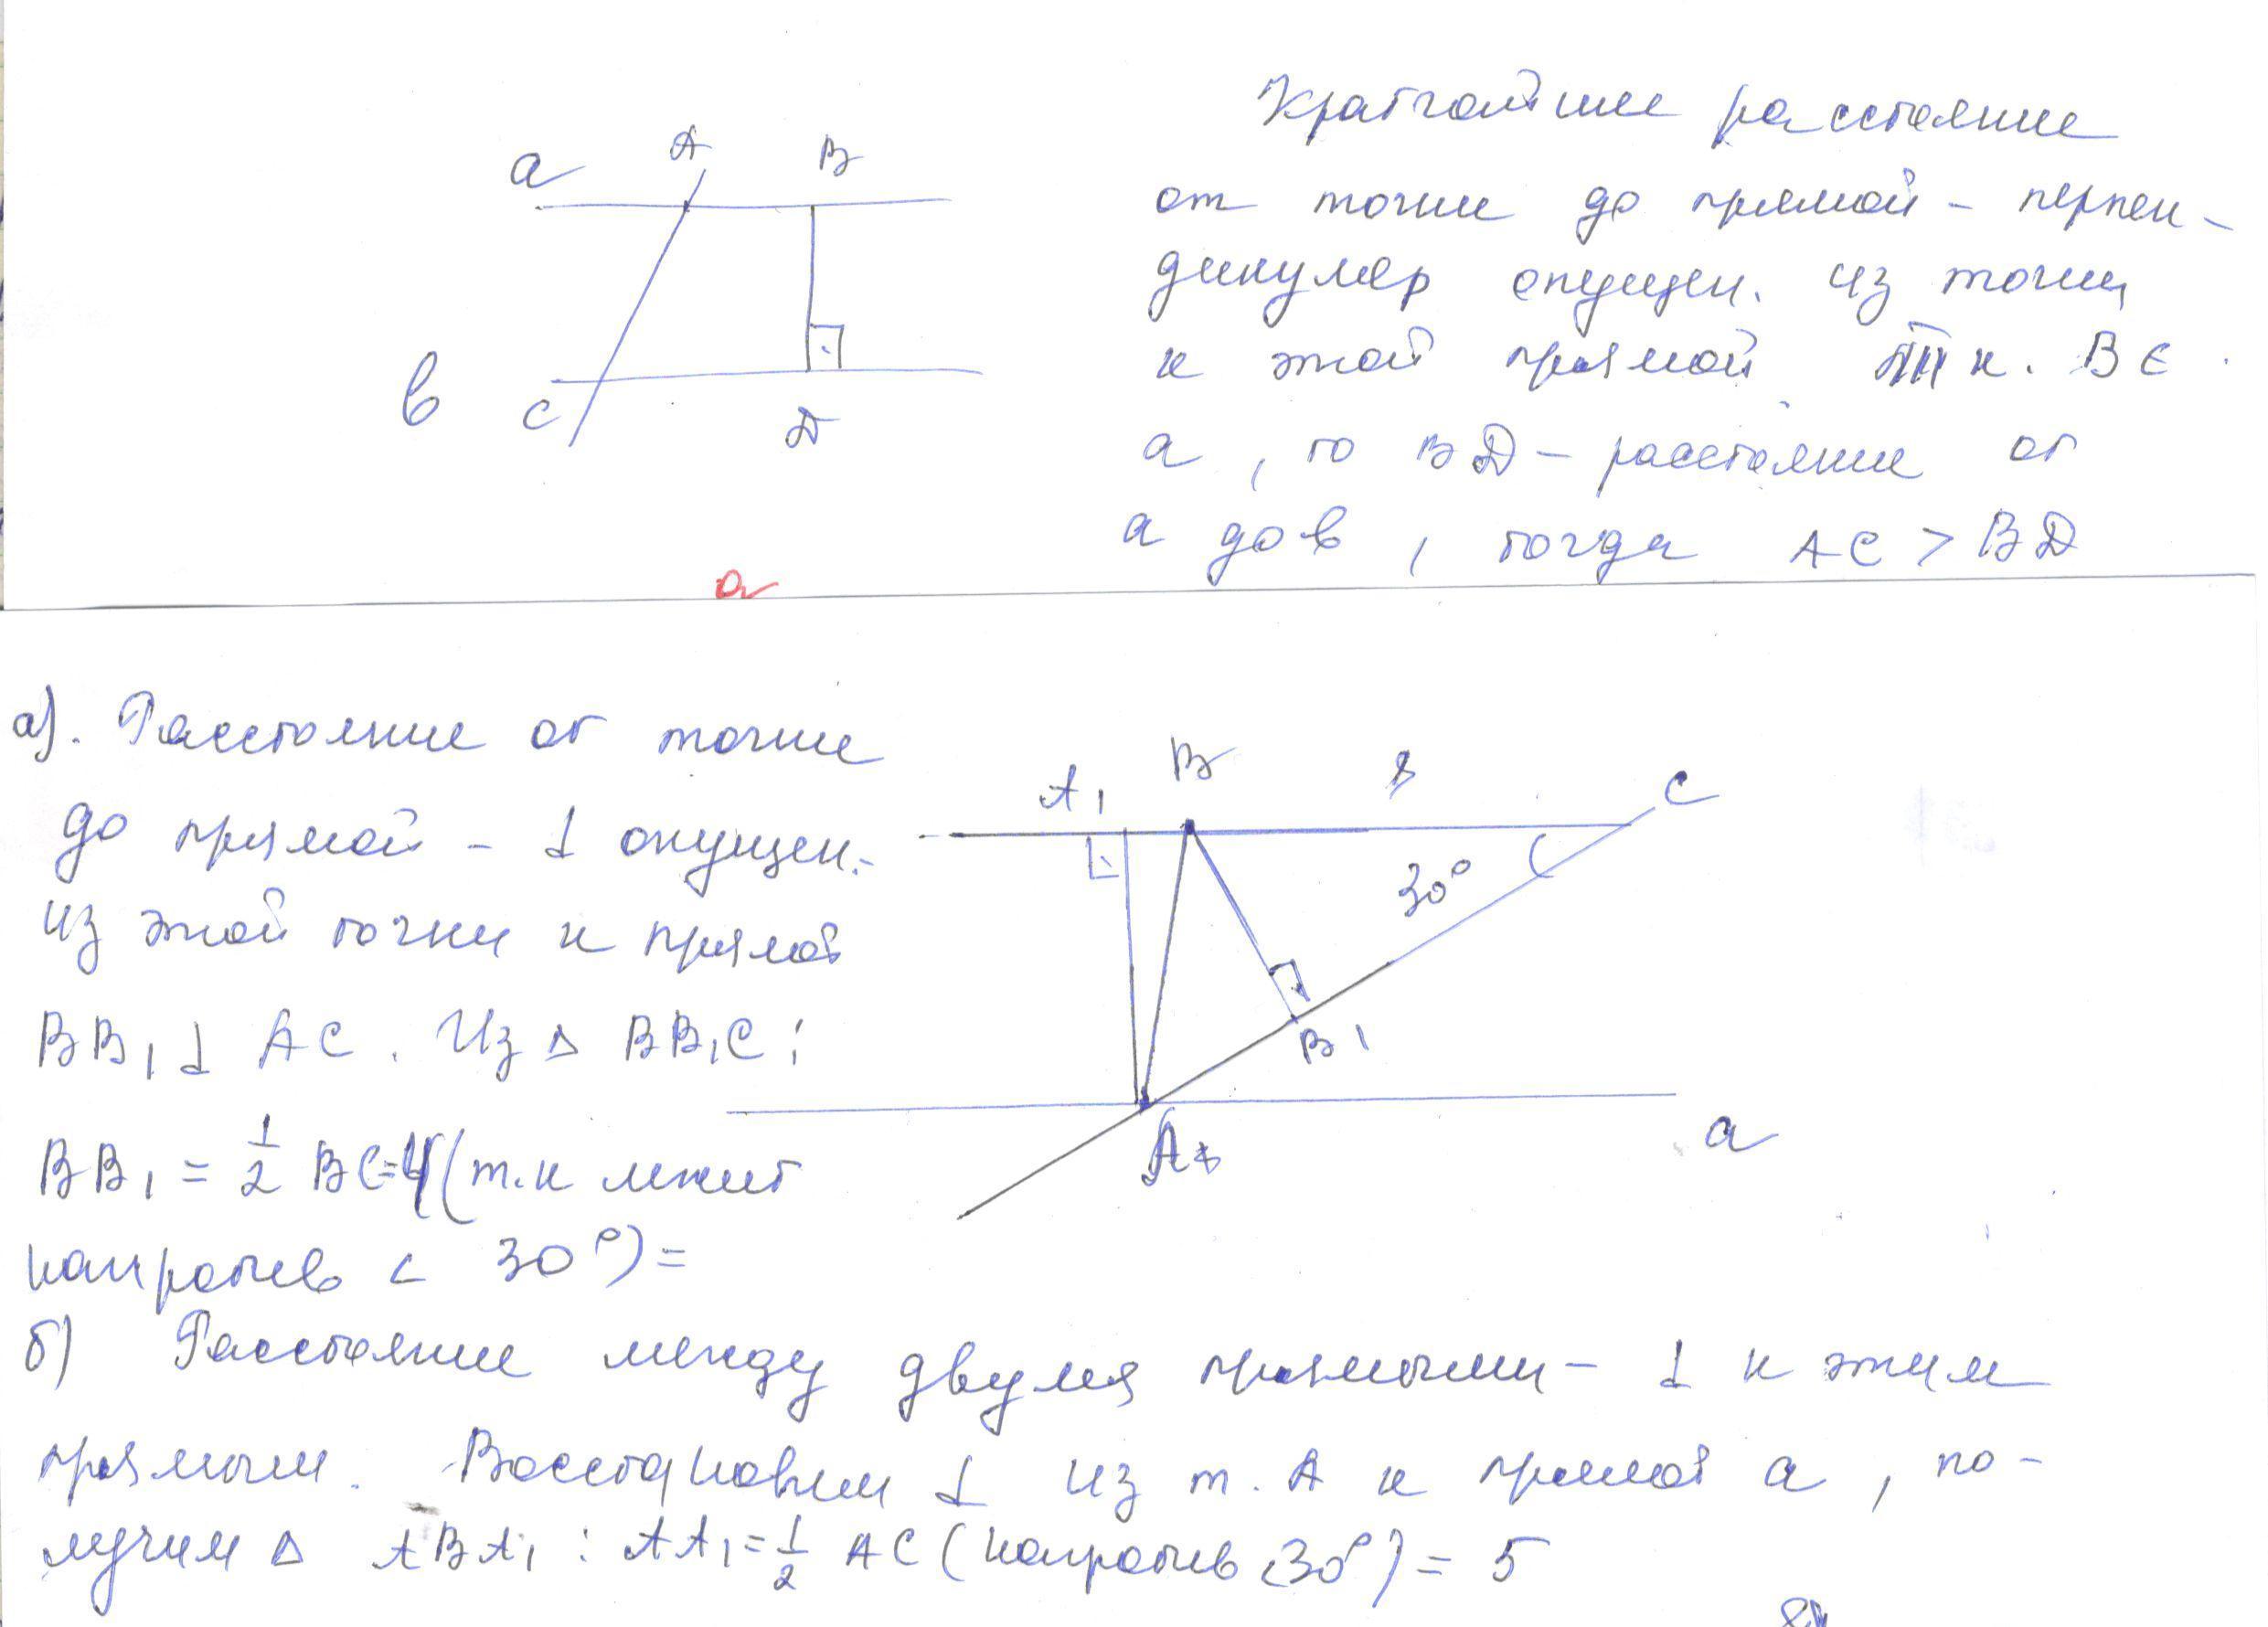 Кратчайшее расстояние
от точки до прямой - перпен-
дикуляр опущен. из точки
к этой прямой Т.к. В ∈
а, то ВД - расстояние от
а до в, тогда АС > ВД
а А В
в С Д
а
а). Расстояние от точки
до прямой - ⊥ опущен.
из этой точки к прямой
ВВ₁ ⊥ АС. Из Δ ВВ₁С:
ВВ₁ = 1/2 ВС=4 (т.к лежит
напротив < 30°) =
А₁ В 8 С
30°
В₁
А
а
б) Расстояние между двумя прямыми - ⊥ к этим
прямым. Восстановим ⊥ из т. А к прямой а, по-
лучим Δ АВА₁: АА₁ = 1/2 АС (напротив <30°) = 5